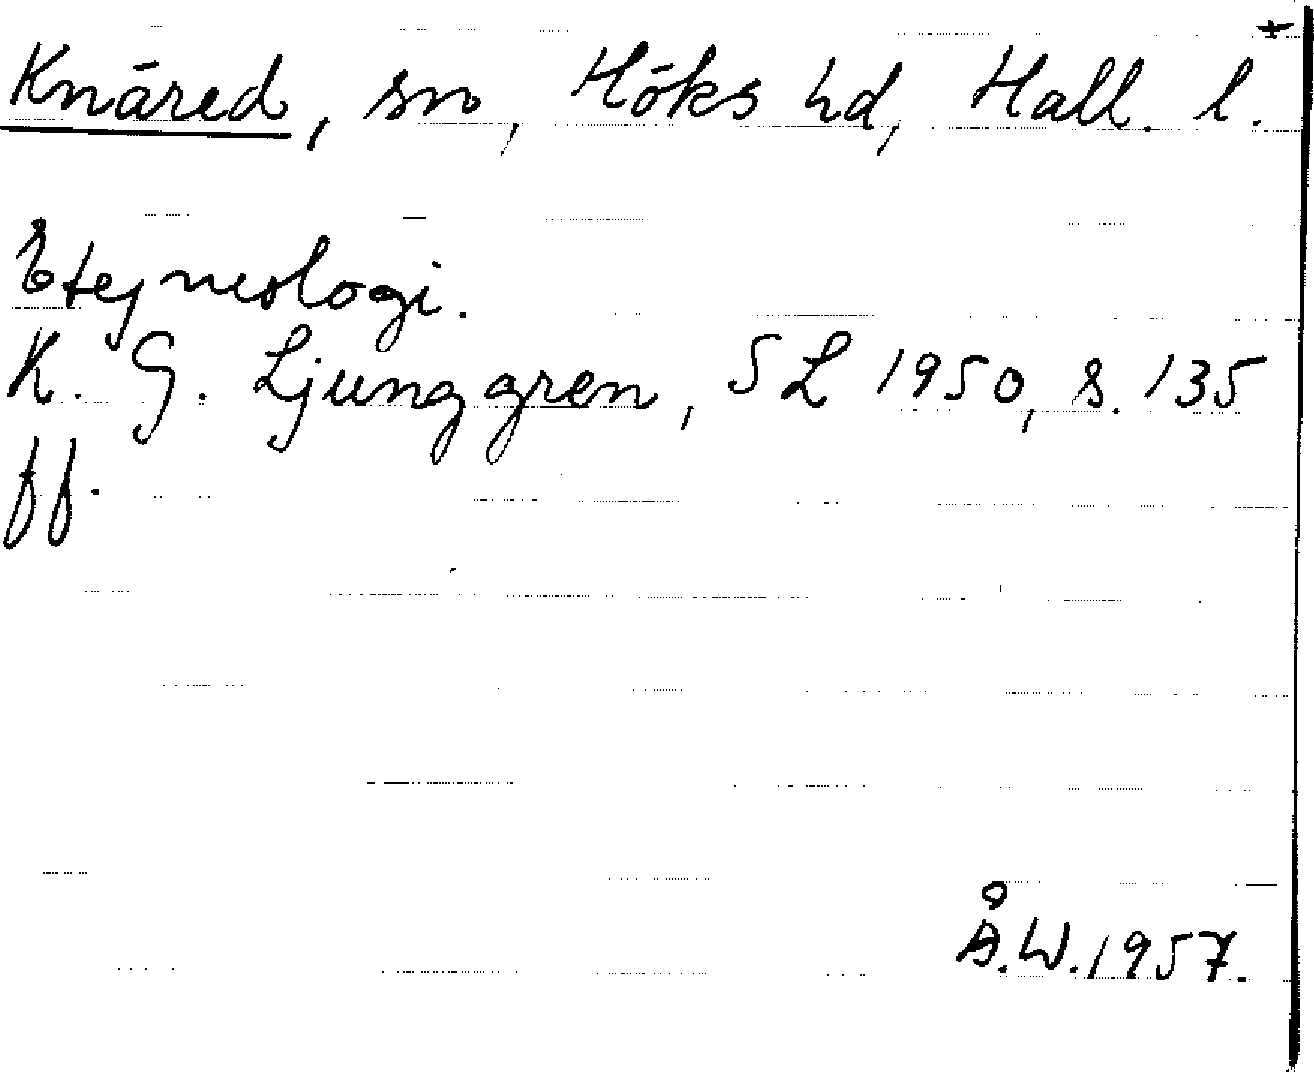 Knäred, sn, Höks hd, Hall. l.
Etymologi.
K. G. Ljunggren, SL 1950, s. 135
ff.
Å.W. 1957.